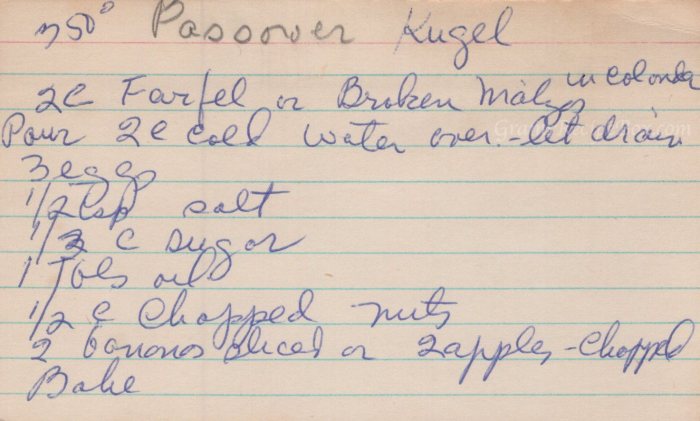 350° Passover Kugel
2c Farfel or Broken Matzos in colander
Pour 2c cold water over - let drain
3 eggs
1/2 tsp salt
1/3 c sugar
1 Tbls oil
1/2 c chopped nuts
2 bananas sliced or 2 apples - chopped
Bake